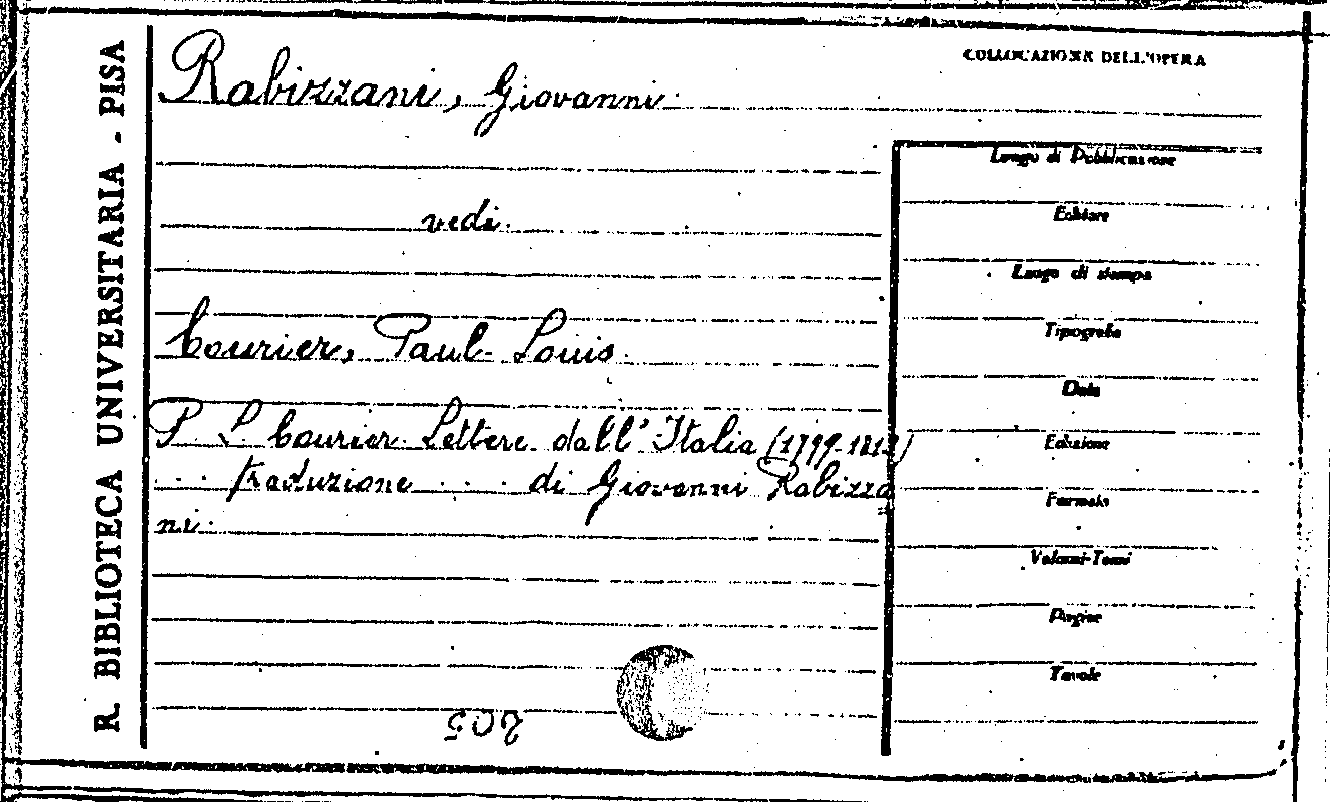 R. BIBLIOTECA UNIVERSITARIA - PISA
COLLOCAZIONE DELL'OPERA
Rabizzani, Giovanni
vedi
Courier, Paul Louis
P L Courier Lettere dall'Italia (1799-1812)
... traduzione ... di Giovanni Rabizza
ni
Luogo di Pubblicazione
Editore
Luogo di stampa
Tipografia
Data
Edizione
Formato
Volumi-Tomi
Pagine
Tavole
205